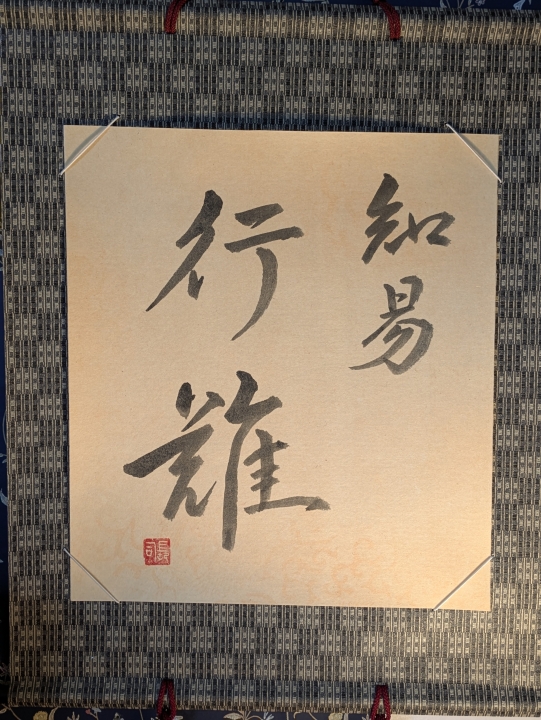 知易
行難